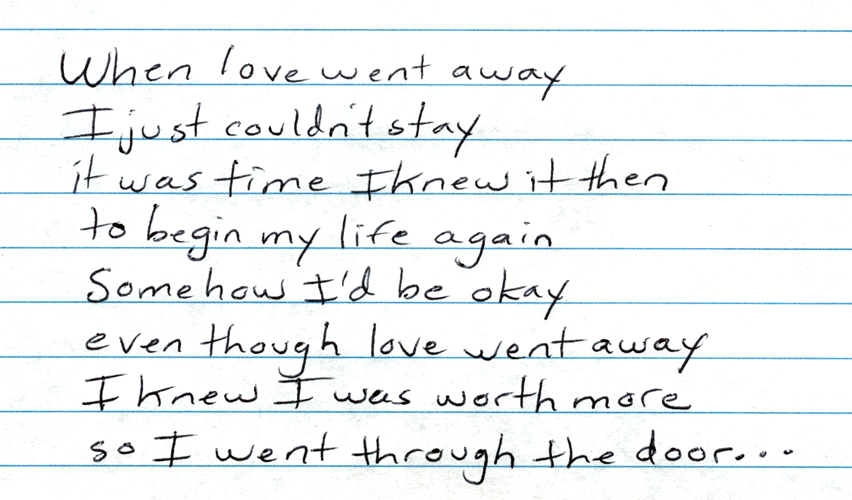 When love went away
I just couldn't stay
it was time I knew it then
to begin my life again
Somehow I'd be okay
even though love went away
I knew I was worth more
so I went through the door...